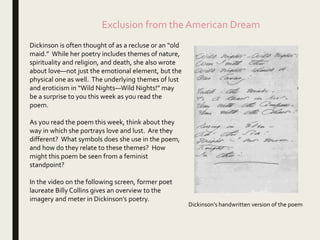 Exclusion from the American Dream
Dickinson is often thought of as a recluse or an "old
maid." While her poetry includes themes of nature,
spirituality and religion, and death, she also wrote
about love—not just the emotional element, but the
physical one as well. The underlying themes of lust
and eroticism in "Wild Nights—Wild Nights!" may
be a surprise to you this week as you read the
poem.
As you read the poem this week, think about they
way in which she portrays love and lust. Are they
different? What symbols does she use in the poem,
and how do they relate to these themes? How
might this poem be seen from a feminist
standpoint?
In the video on the following screen, former poet
laureate Billy Collins gives an overview to the
imagery and meter in Dickinson's poetry.
Wild Nights Wild Nights
Dickinson's handwritten version of the poem